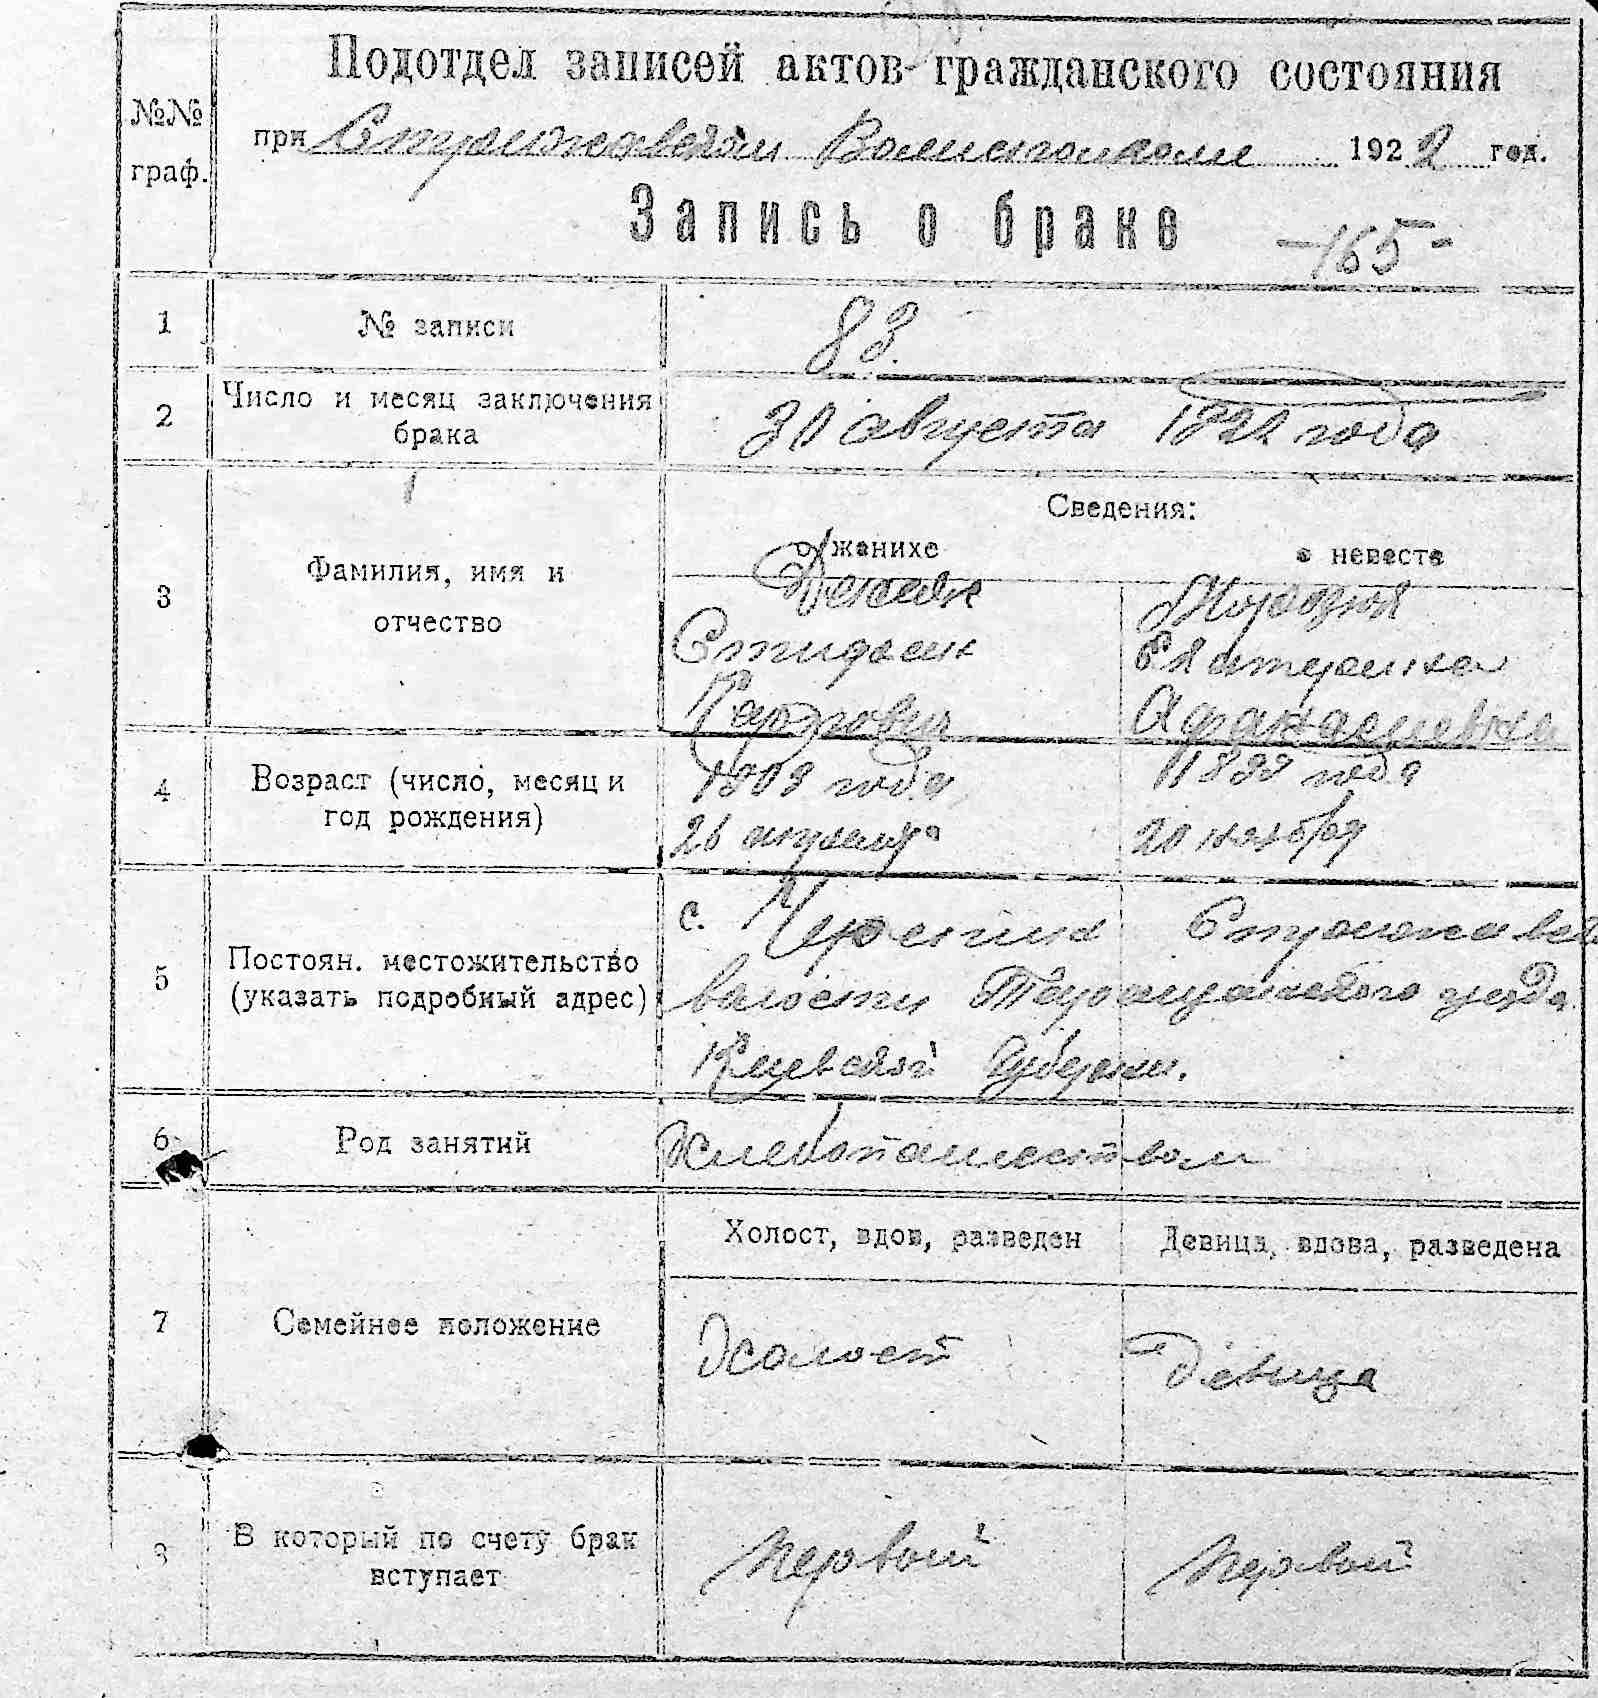 №№ граф.
Подотдел записей актов гражданского состояния
при Стрижавском Волисполкоме 1922 год.
Запись о браке -165-
1 № записи 83.
2 Число и месяц заключения брака
августа 1922 года
Сведения:
о женихе о невесте
3 Фамилия, имя и отчество
Екатерина
Карпович Афанасиевна
4 Возраст (число, месяц и год рождения)
года года
26 апреля 20 ноября
5 Постоян. местожительство (указать подробный адрес)
с. Черепин
волости Таращанского уезда
Киевской Губернии.
6 Род занятий Хлебопашеством
7 Семейное положение
Холост, вдов, разведен Девица, вдова, разведена
Холост Девица
8 В который по счету брак вступает
Первый Первый